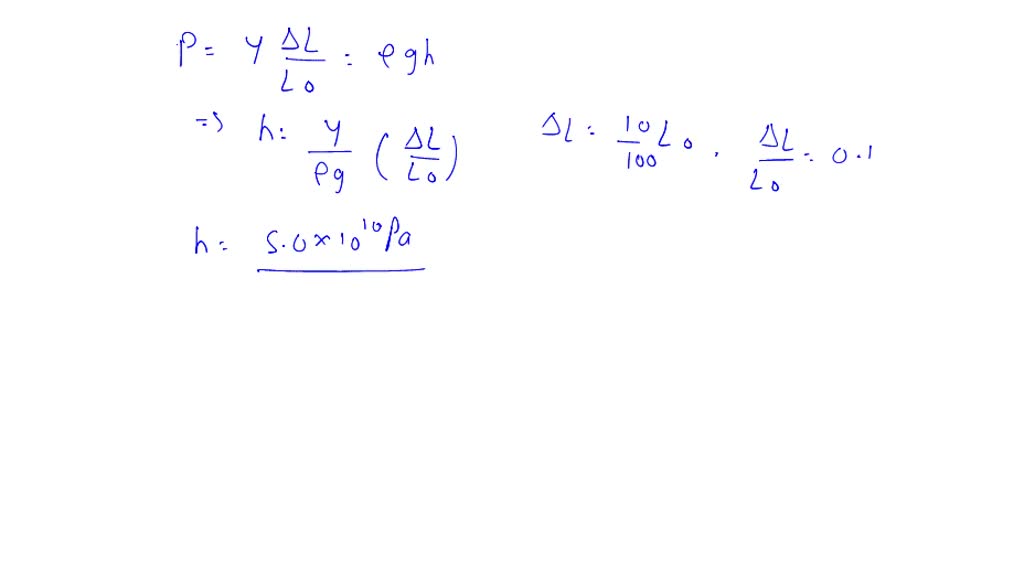 P = Y ΔL/L0 = ρgh
=> h = Y/ρg (ΔL/L0)
ΔL = 10/100 L0, ΔL/L0 = 0.1
h = 5.0×10^10 Pa